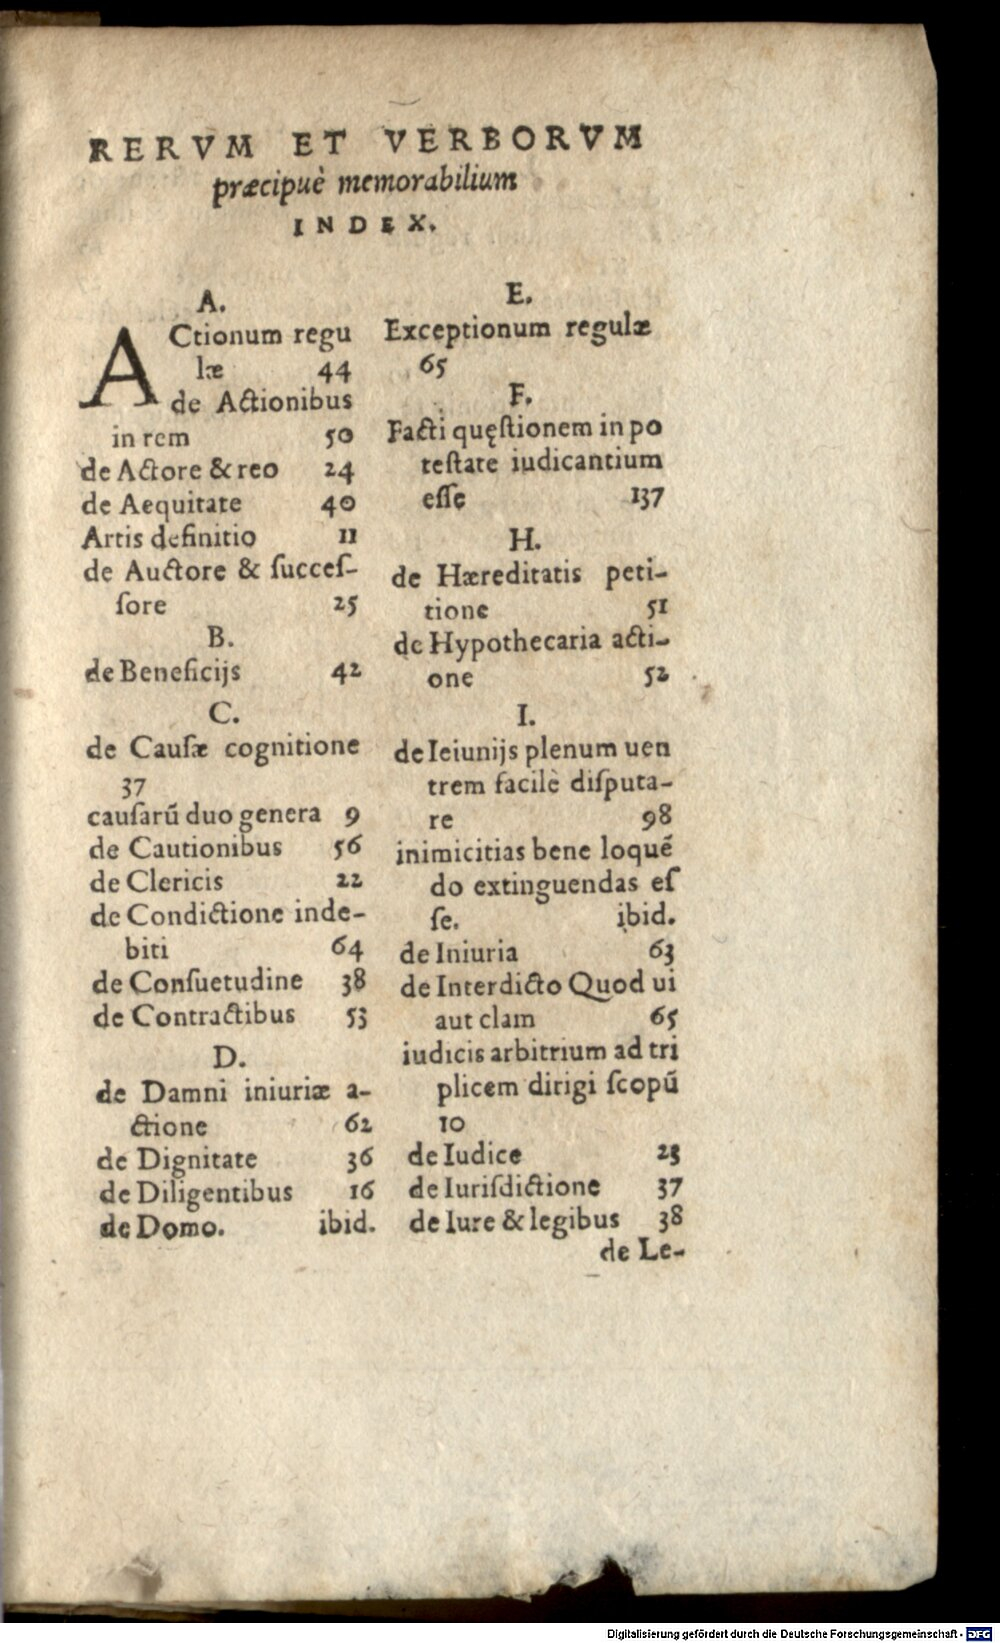 RERVM ET VERBORVM
præcipuè memorabilium
INDEX.
A.
ACtionum regu
læ 44
de Actionibus
in rem 50
de Actore & reo 24
de Aequitate 40
Artis definitio 11
de Auctore & succeſ-
ſore 25
B.
de Beneficijs 42
C.
de Cauſæ cognitione
37
cauſarũ duo genera 9
de Cautionibus 56
de Clericis 22
de Condictione inde-
biti 64
de Conſuetudine 38
de Contractibus 53
D.
de Damni iniuriæ a-
ctione 62
de Dignitate 36
de Diligentibus 16
de Domo. ibid.
E.
Exceptionum regulæ
65
F.
Facti quęſtionem in po
teſtate iudicantium
eſſe 137
H.
de Hæreditatis peti-
tione 51
de Hypothecaria acti-
one 52
I.
de Ieiunijs plenum uen
trem facilè diſputa-
re 98
inimicitias bene loquẽ
do extinguendas eſ
ſe. ibid.
de Iniuria 63
de Interdicto Quod ui
aut clam 65
iudicis arbitrium ad tri
plicem dirigi ſcopũ
10
de Iudice 23
de Iuriſdictione 37
de Iure & legibus 38
de Le-
Digitalisierung gefördert durch die Deutsche Forschungsgemeinschaft - DFG